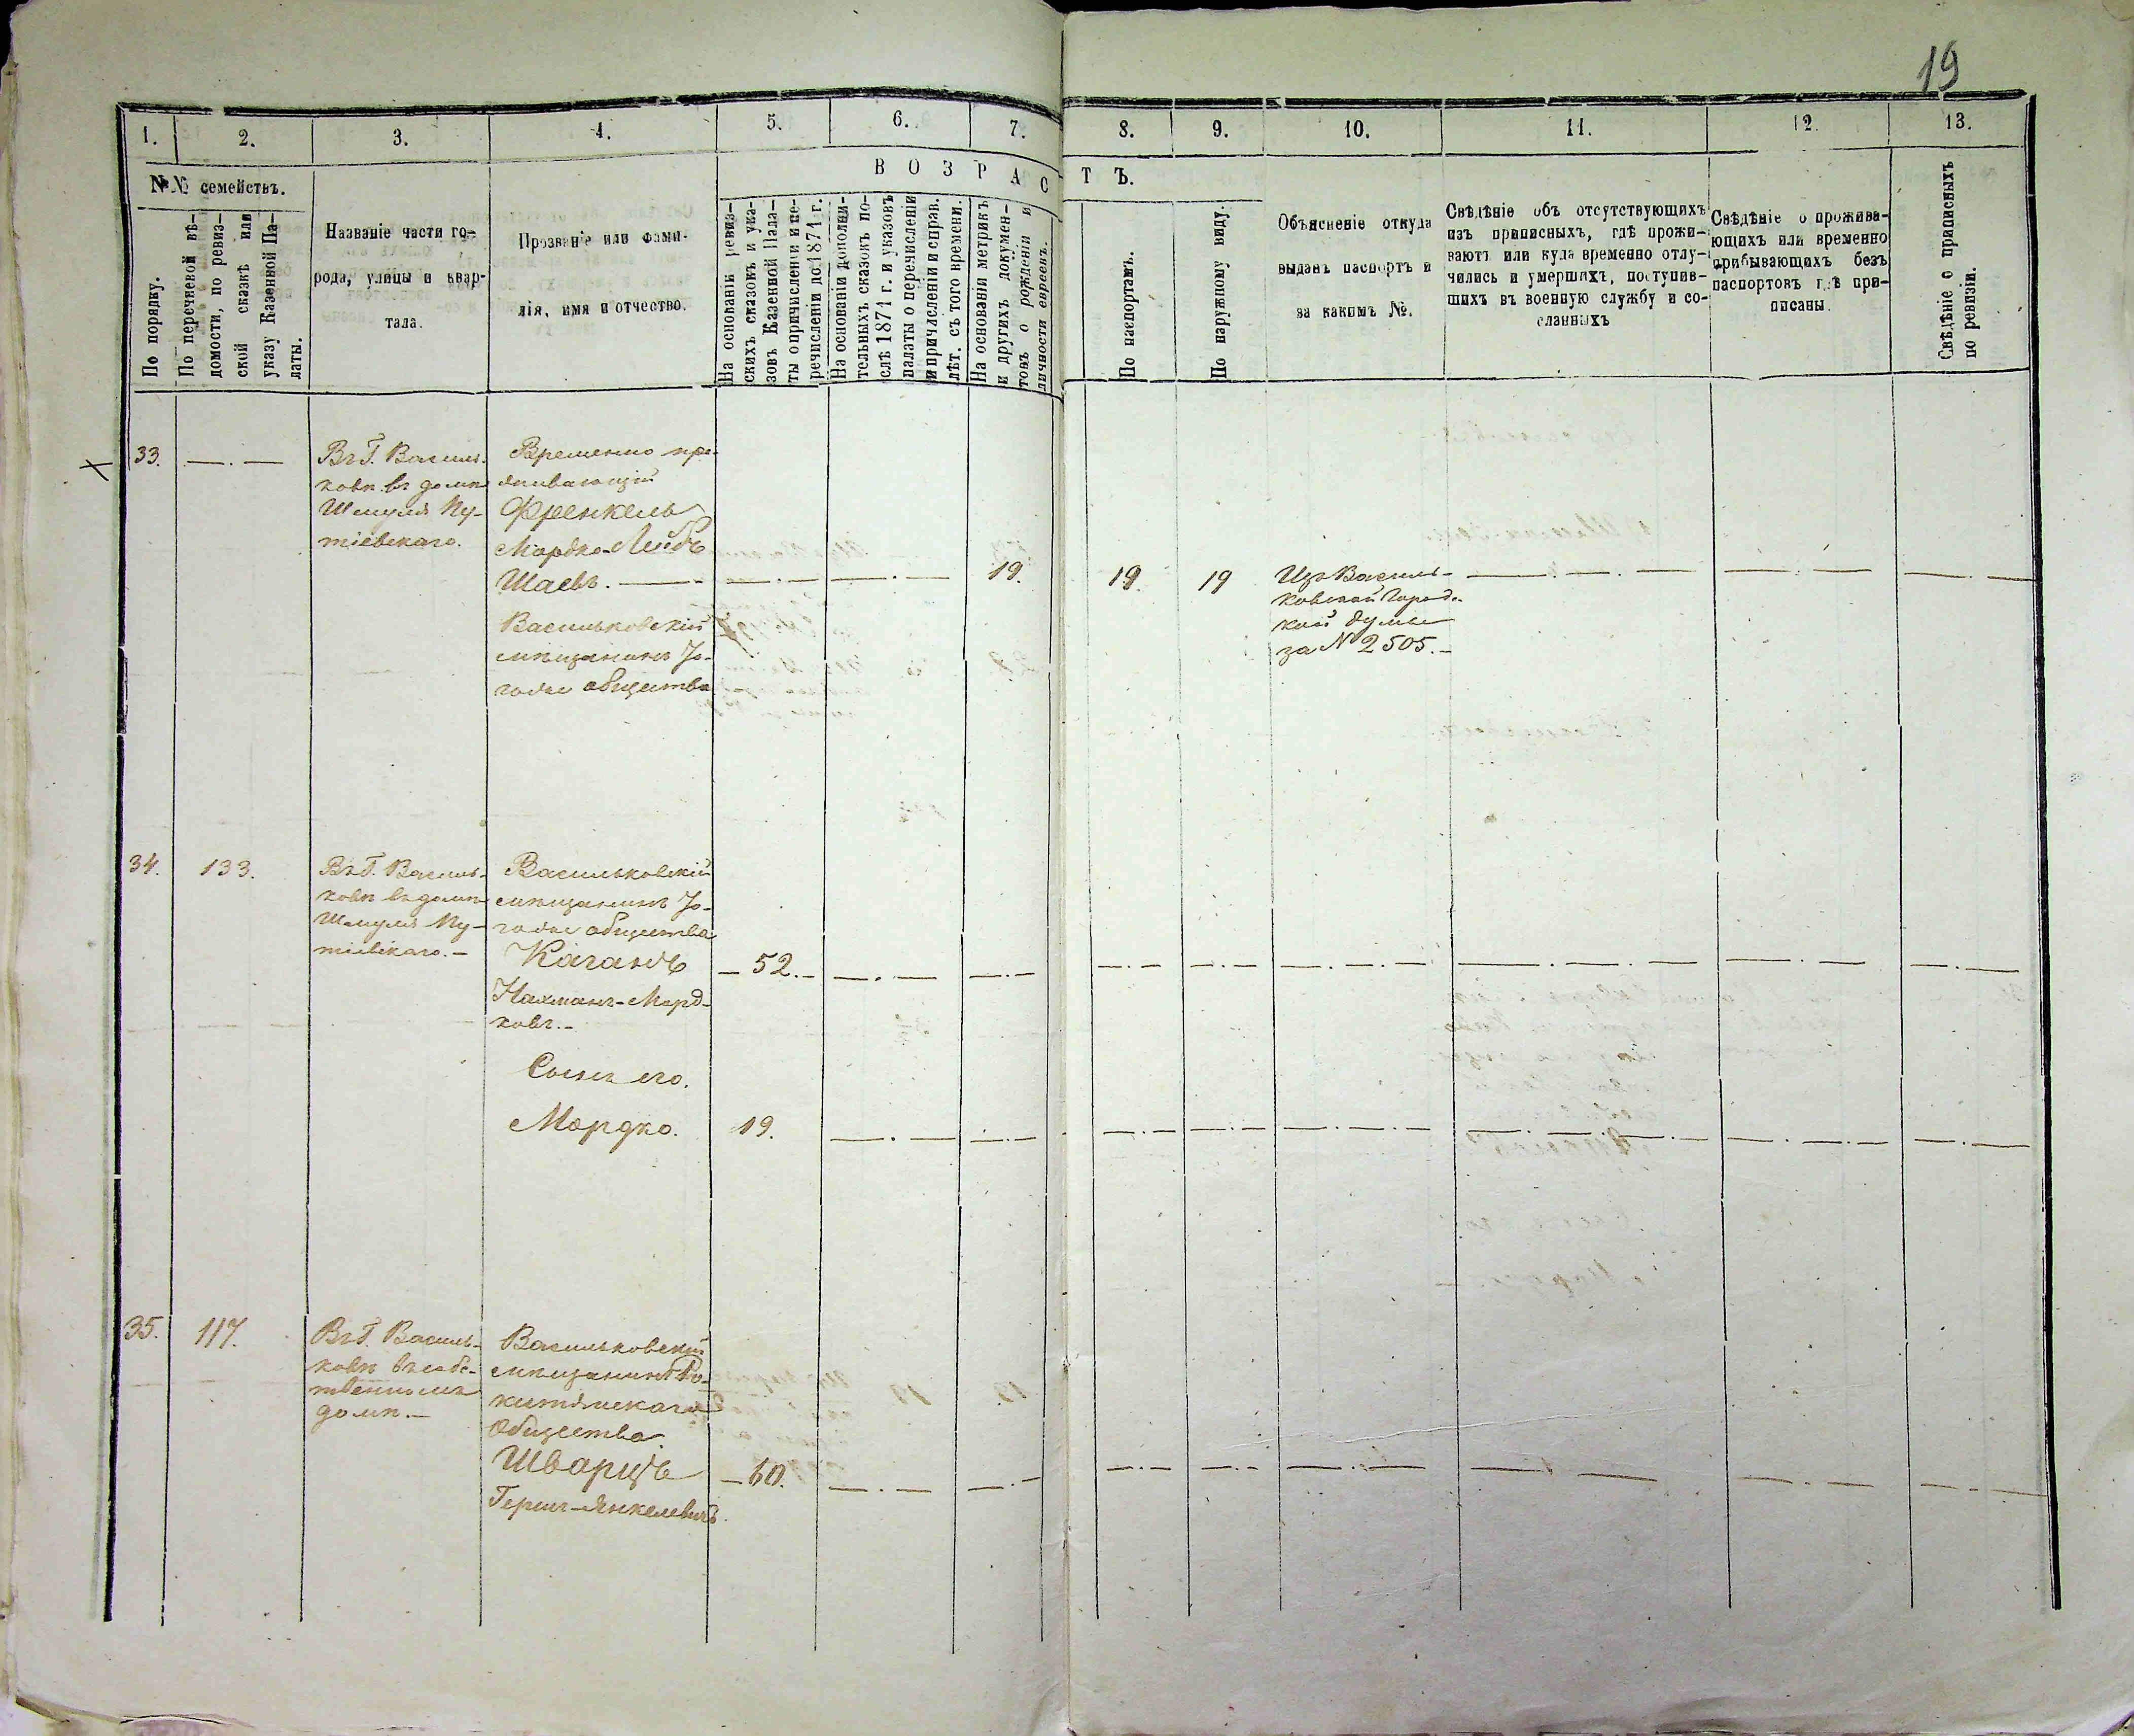 19
1. 2. 3. 4. 5. 6. 7. 8. 9. 10. 11. 12. 13.
№№ семействъ.
В О З Р А С Т Ъ.
По порядку.
По перечневой вѣ-
домости, по ревиз-
ской сказкѣ или
указу Казенной Па-
латы.
Названіе части го-
рода, улицы и квар-
тала.
Прозваніе или фами-
лія, имя и отчество.
На основаніи ревиз-
скихъ сказокъ и ука-
зовъ Казенной Пала-
ты о причисленіи и пе-
речисленіи до 1874 г.
На основаніи дополни-
тельныхъ сказокъ по-
слѣ 1874 г. и указовъ
палаты о перечисленіи
и причисленіи и справ.
лѣт. съ того времени.
На основаніи метрикъ
и другихъ докумен-
товъ о рожденіи и
личности евреевъ.
По паспортамъ.
По наружному виду.
Объясненіе откуда
выданъ паспортъ и
за какимъ №.
Свѣдѣніе объ отсутствующихъ
изъ приписныхъ, гдѣ прожи-
ваютъ или куда временно отлу-
чились и умершихъ, поступив-
шихъ въ военную службу и со-
сланныхъ
Свѣдѣніе о прожива-
ющихъ или временно
прибывающихъ безъ
паспортовъ гдѣ при-
писаны.
Свѣдѣніе о приписныхъ
по ревизіи.
33.
Въ Г. Василь-
ковѣ въ домѣ
Шмуля Пу-
тіевскаго.
Временно про-
живающій
Френкель
Мордко-Лейбъ
Шаевъ.
Васильковскій
мѣщанинъ Jо-
годѣе общества
19.
19.
19
Изъ Василь-
ковской Городс-
кой думы
за № 2505.
34.
133.
Въ Г. Василь-
ковѣ въ домѣ
Шмуля Пу-
тіевскаго.
Васильковскій
мѣщанинъ Jо-
годѣе общества
Каганъ
Нахманъ-Морд-
ковъ.
52.
Сынъ его.
Мордко.
19.
35.
117.
Въ Г. Василь-
ковѣ въ собс-
твенномъ
домѣ.
Васильковскій
мѣщанинъ Ро-
китянскаго
Общества
Шварцъ
Гершъ-Янкелевичъ.
60.